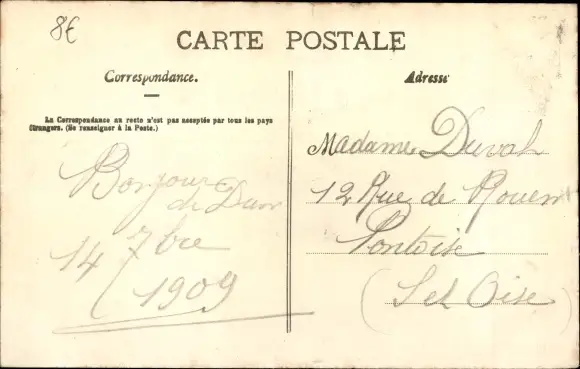 8€
CARTE POSTALE
Correspondance.
Adresse
La Correspondance au recto n'est pas acceptée par tous les pays
étrangers. (Se renseigner à la Poste.)
Bonjour
de Dun
14 7bre
1909
Madame Duval
12 Rue de Rouen
Pontoise
(S et Oise)